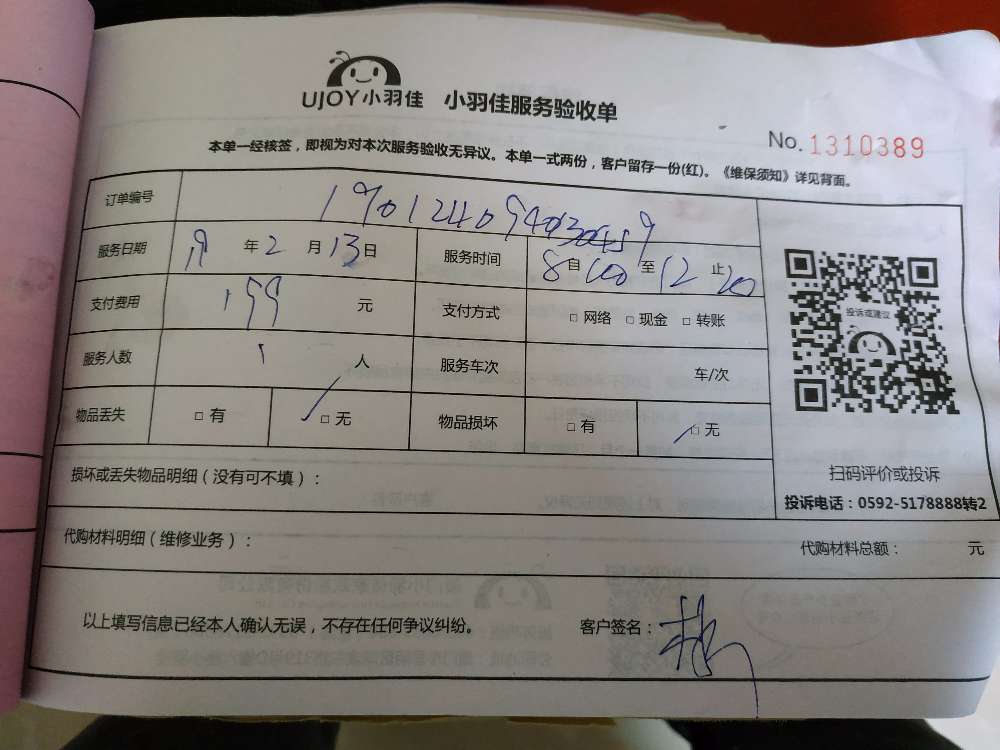 UJOY小羽佳 小羽佳服务验收单
No. 1310389
本单一经核签，即视为对本次服务验收无异议。本单一式两份，客户留存一份(红)。《维保须知》详见背面。
订单编号
服务日期 19 年 2 月 13 日 服务时间 8 自 00 至 12 止 20
支付费用 199 元 支付方式 □ 网络 □ 现金 □ 转账
投诉或建议
服务人数 1 人 服务车次 车/次
物品丢失 □ 有 □ 无 物品损坏 □ 有 □ 无
损坏或丢失物品明细（没有可不填）：
扫码评价或投诉
投诉电话：0592-5178888转2
代购材料明细（维修业务）： 代购材料总额： 元
以上填写信息已经本人确认无误，不存在任何争议纠纷。 客户签名：